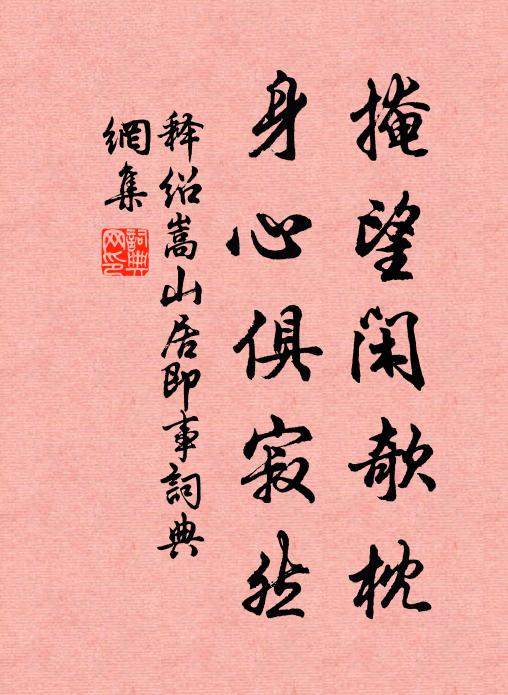 掩望闲欹枕
身心俱寂然
释绍嵩山居即事词典
網集
詞典網印